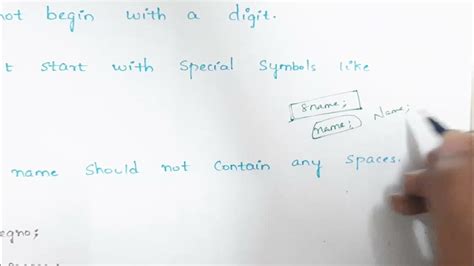 not begin with a digit.
t start with Special Symbols like
8name;
name; Name;
name should not contain any spaces.
egno;